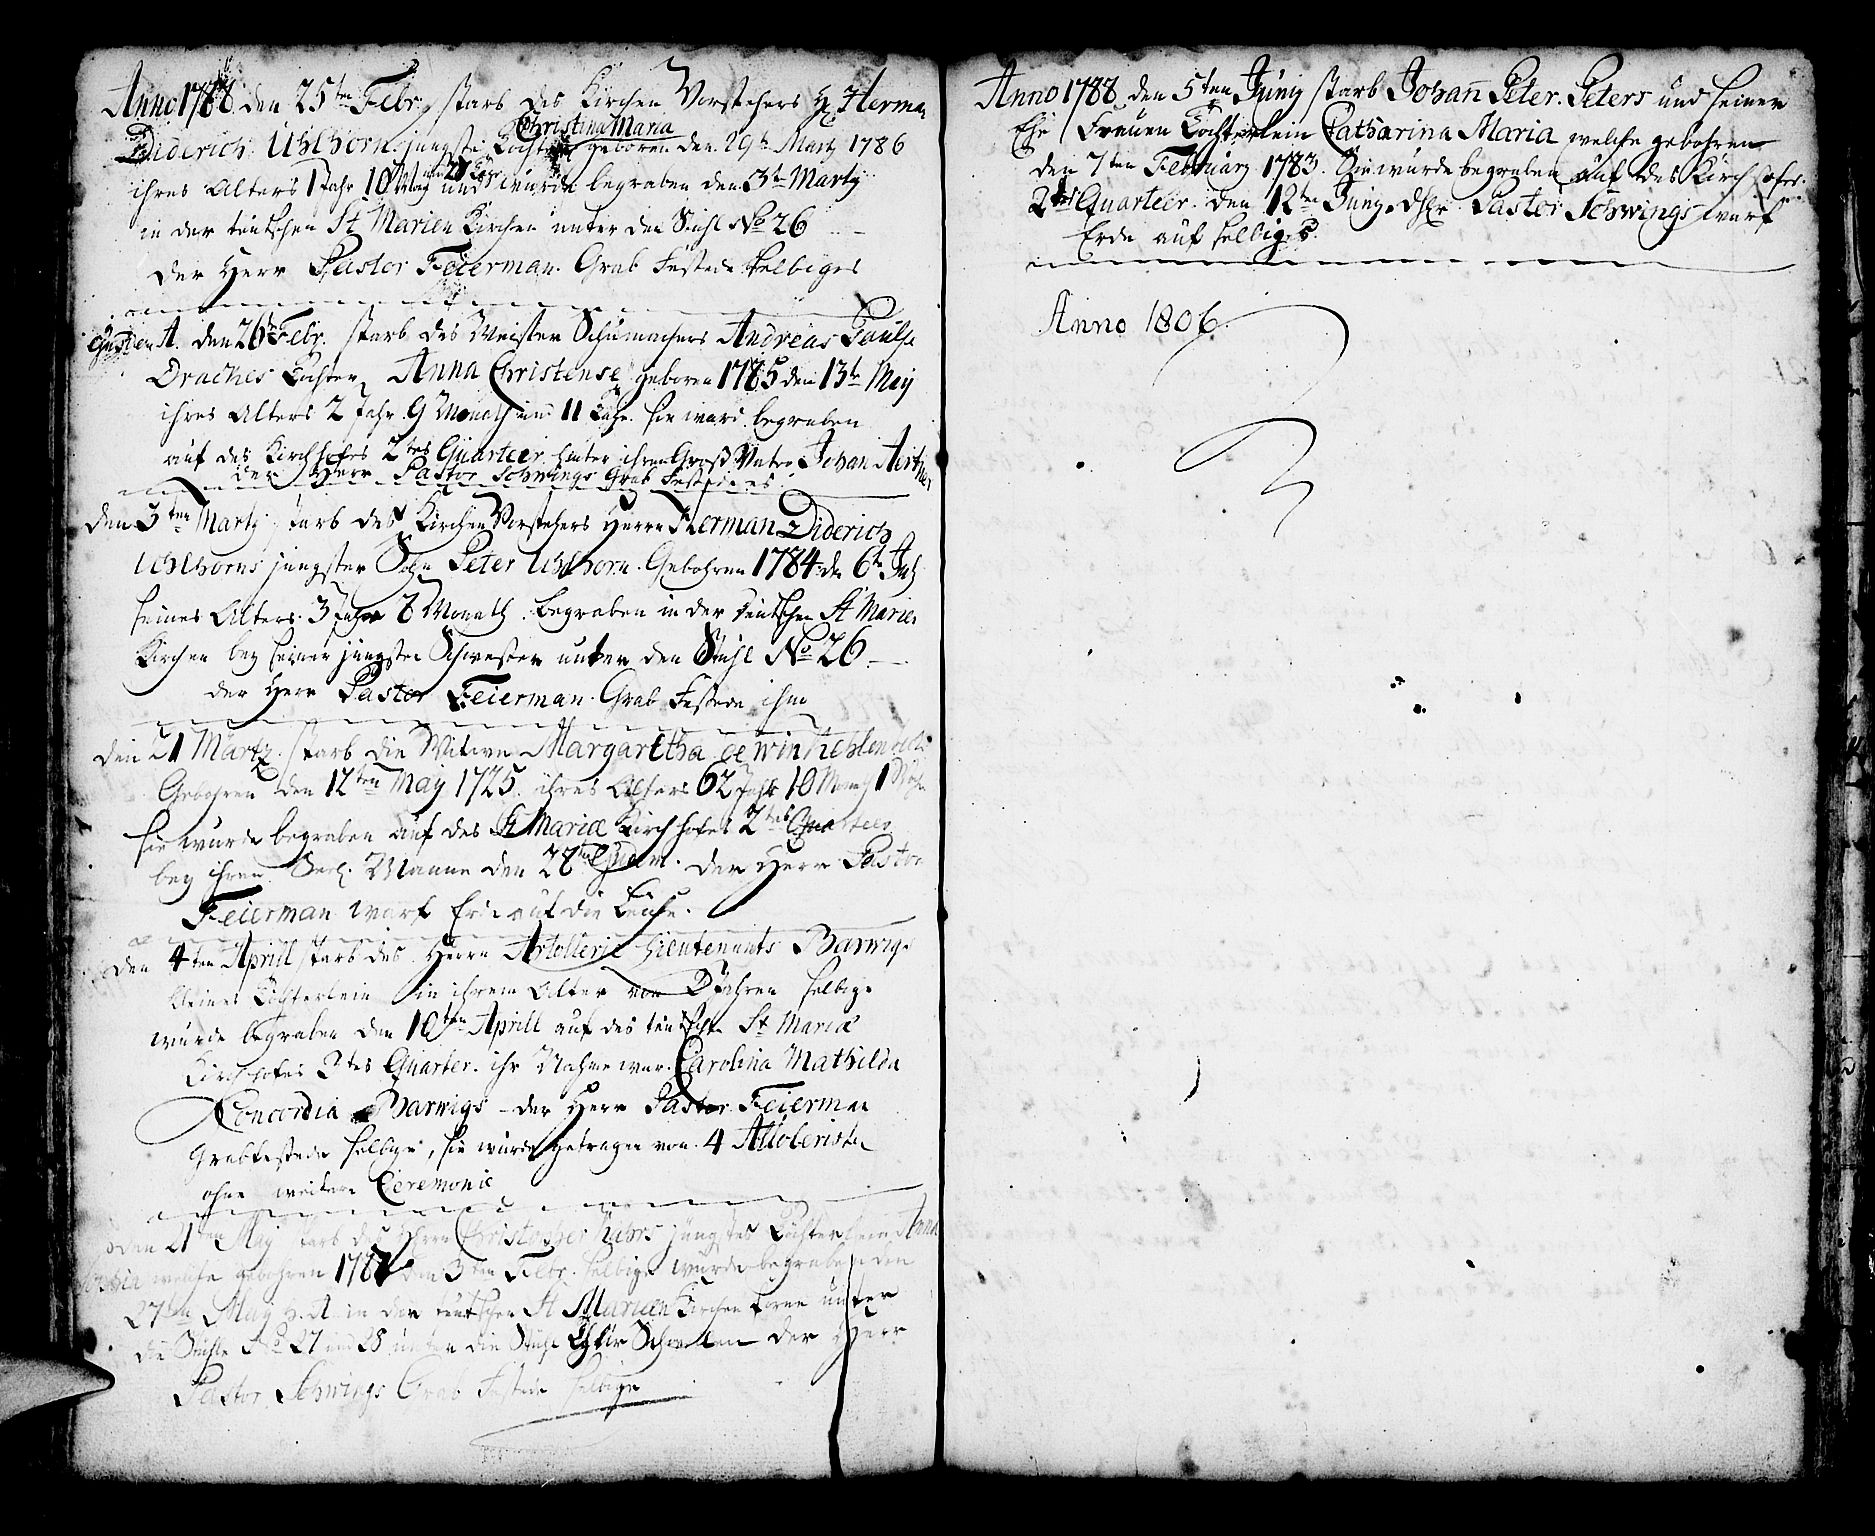 Anno 1788 den 25ten Febr. starb des Kirchen Vorstehers H. Herman
Christina Maria
Diderich Uhlhorn jüngste Tochter geboren den 29ten Martz 1786
ihres Alters 1 Jahr 10 und wurde begraben den 3ten Martz
in der teutschen St Marien Kirchen unter den Stuhl No 26
der Herr Pastor Feierman Grab Festede selbiges
A. den 26ten Febr. starb des Meister Schumachers Andreas
Draches Tochter Anna Christense geboren 1785 den 13te May
ihres Alters 2 Jahr 9 Monath und 11 Tage. sie ward begraben
auf des Kirchhofes 2tes Quarteer hinter ihren Groß Vater Johan
der Herr Pastor Schwings Grab Festede es
den 3ten Martz starb des Kirchen Vorstehers Herrn Herman Diderich
Uhlhorns jungster Sohn Peter Uhlhorn. Gebohren 1784 den 6te
seines Alters 3 Jahr 8 Monath. begraben in der teutschen St Marien
Kirchen bey seiner jungsten Schwester unter den Stuhl No 26
der Herr Pastor Feierman Grab Festede ihm
den 21 Martz starb die Witwe Margaretha
Gebohren den 12ten May 1725. ihres Alters 62 Jahr 10 Monath 1
sie wurde begraben auf des St Mariæ Kirchhofes 2tes Quarteer
bey ihren Seel. Manne den 28te der Herr Pastor
Feierman warf Erde auf die Leiche.
den 4ten Aprill starb des Herrn Artolleri Lieutenants Barwigs
kleines Töchterlein in ihrem Alter von Jahren selbige
wurde begraben den 10ten Aprill auf des teutschen St Mariæ
Kirchhofes 2tes Quarter. ihr Nahme war Carolina Mathilda
Concordia Barwigs der Herr Pastor Feierman
Grabfestede selbige, sie wurde getragen von 4
ohne weitere Ceremonie
den 21ten May starb des Herrn Christopher jüngstes Töchterlein Anna
welche gebohren 1787 den 3ten Febr. selbige wurde begraben den
27ten May h. A. in der teutschen St Marien Kirchen unter
die Stühle No 27 und 28 unter die Stuhl der Herr
Pastor Schwings Grab Festede selbige
Anno 1788 den 5ten Juny starb Johan Peter Peters und seiner
Ehe Frauen Töchterlein Catharina Maria welche gebohren
den 7ten February 1783. Sie wurde begraben auf des Kirchhofes
2tes Quarteer den 12ten Juny. Pastor Schwings warf
Erde auf selbiges.
Anno 1806.